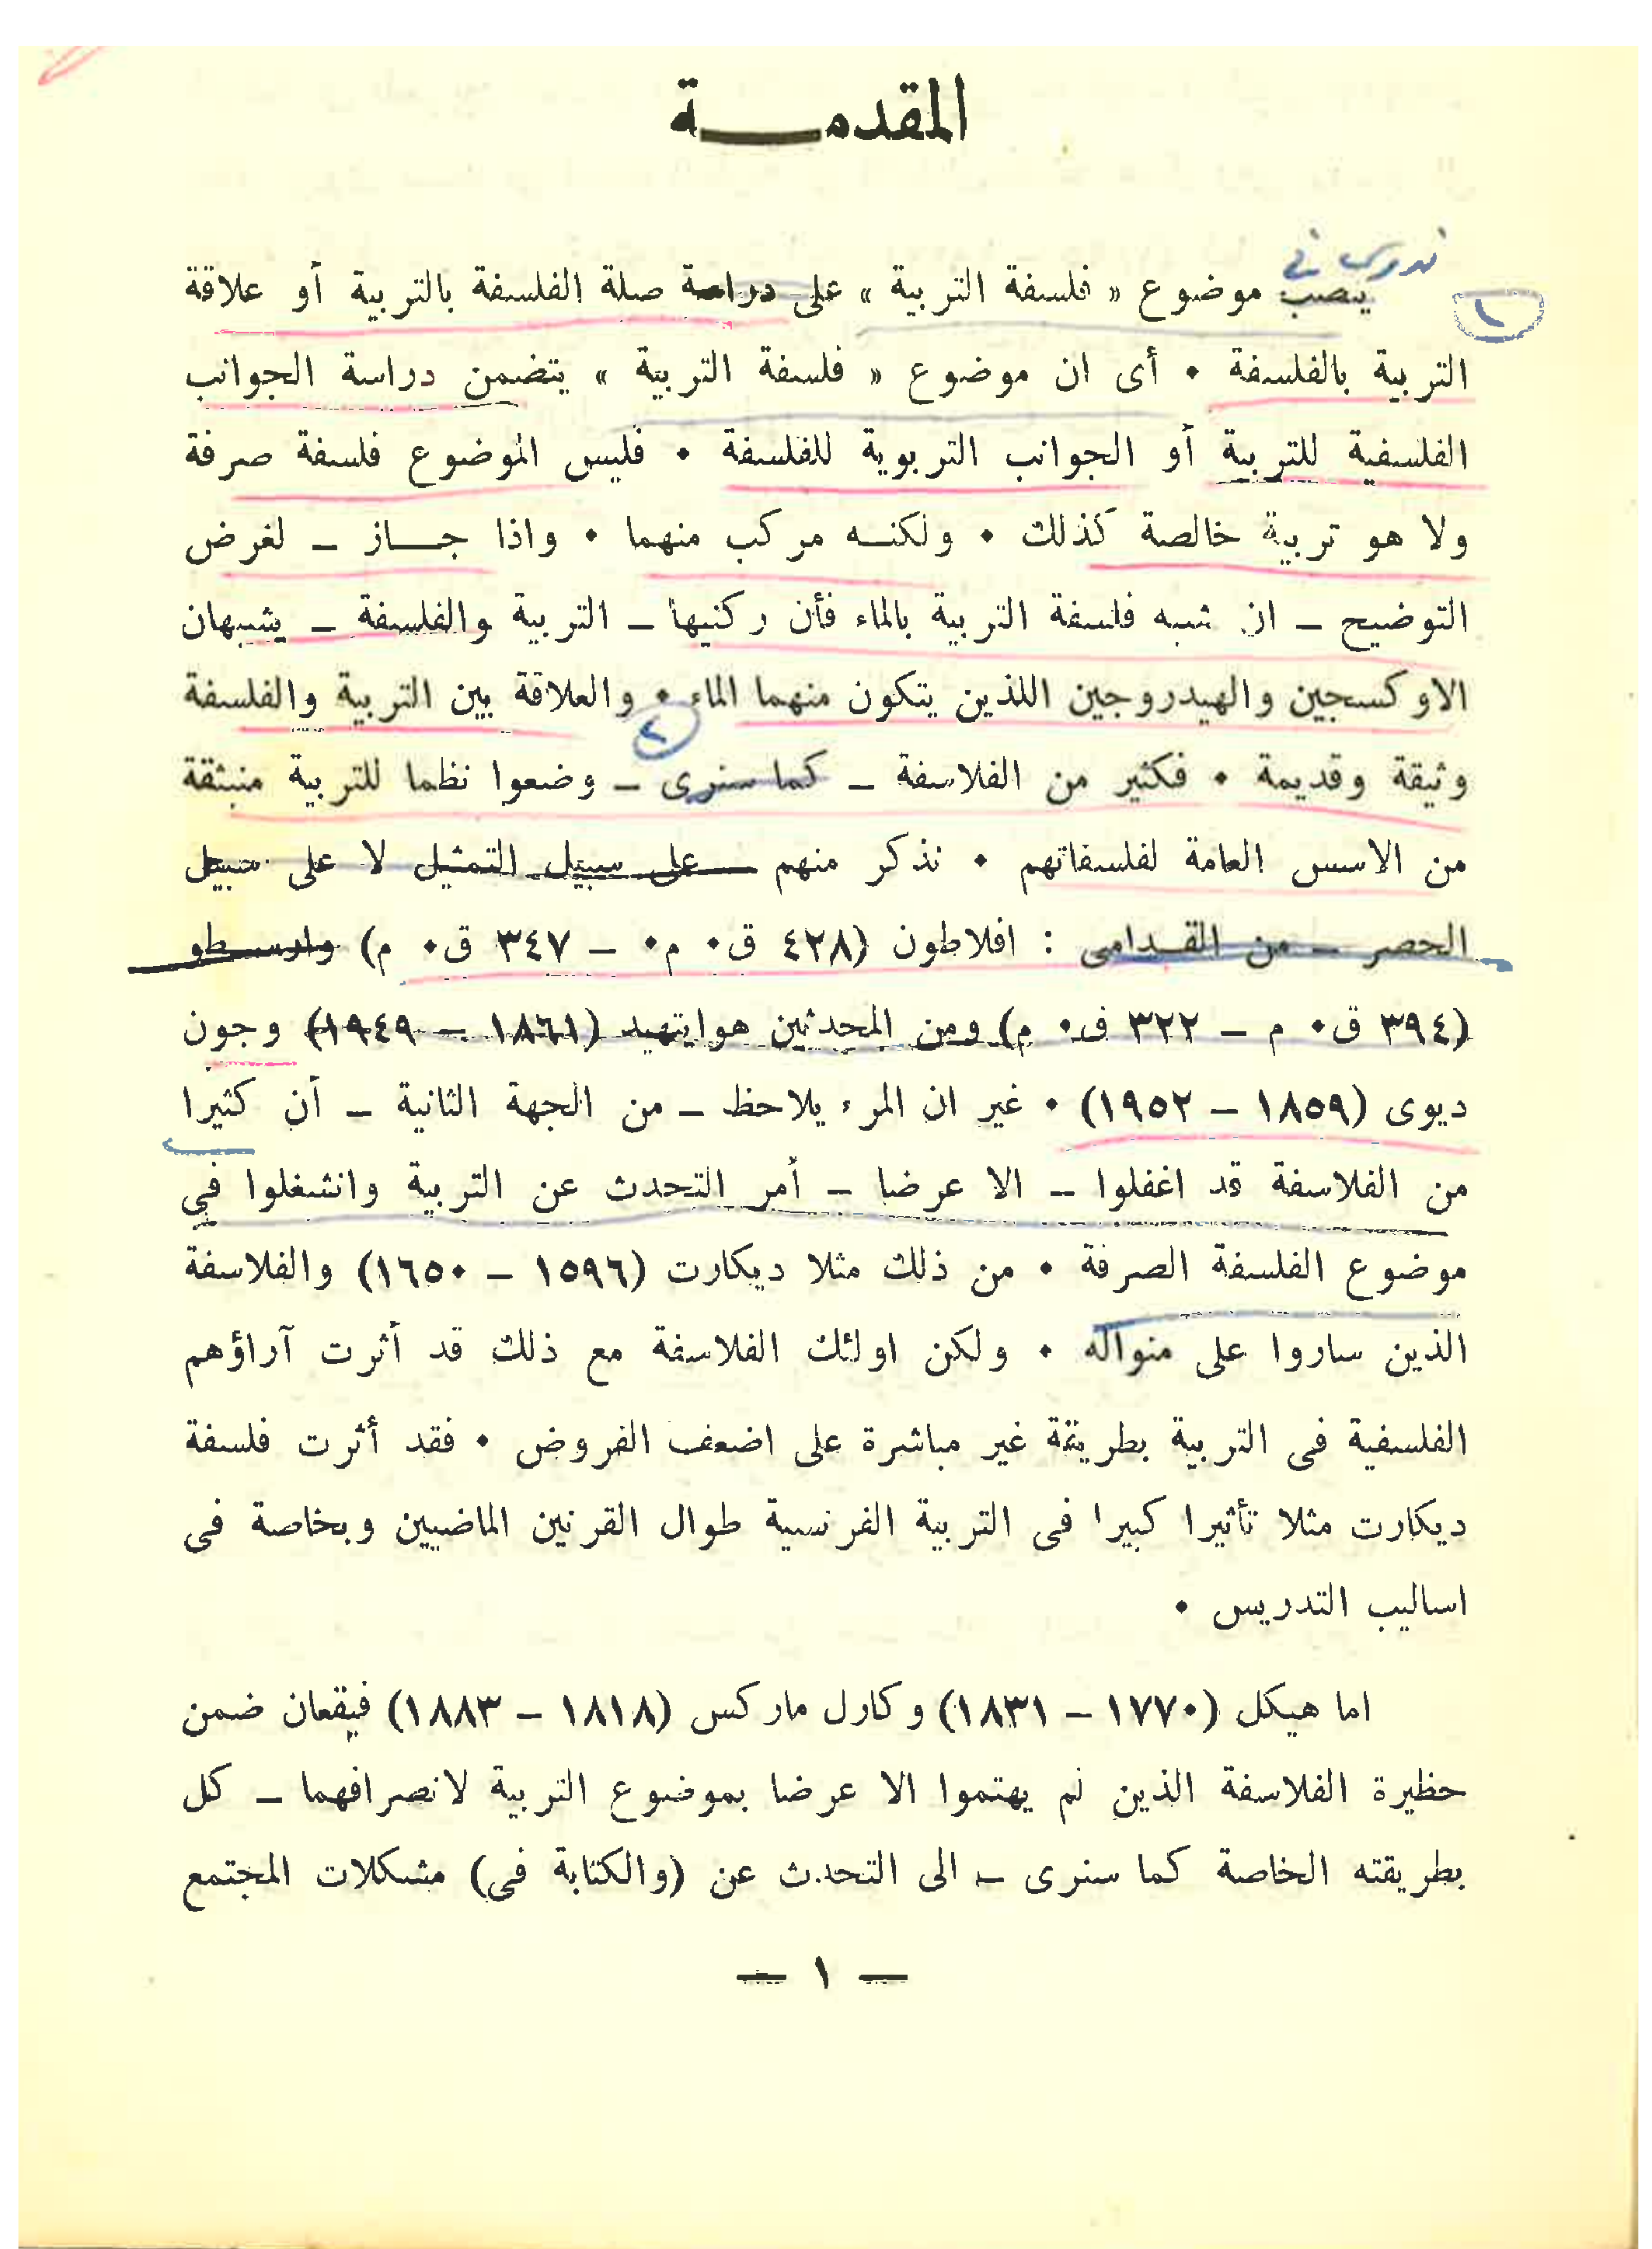 المقدمـــة
ندرس في
١
ينصب موضوع « فلسفة التربية » على دراسة صلة الفلسفة بالتربية أو علاقة
التربية بالفلسفة ٠ أى ان موضوع « فلسفة التربية » يتضمن دراسة الجوانب
الفلسفية للتربية أو الجوانب التربوية للفلسفة ٠ فليس الموضوع فلسفة صرفة
ولا هو تربية خالصة كذلك ٠ ولكنــه مركب منهما ٠ واذا جــاز ــ لغرض
التوضيح ــ ان نشبه فلسفة التربية بالماء فأن ركنيها ــ التربية والفلسفة ــ يشبهان
الاوكسجين والهيدروجين اللذين يتكون منهما الماء ٠ والعلاقة بين التربية والفلسفة
٢
وثيقة وقديمة ٠ فكثير من الفلاسفة ــ كما سنرى ــ وضعوا نظما للتربية منبثقة
من الاسس العامة لفلسفاتهم ٠ نذكر منهم ــ على سبيل التمثيل لا على سبيل
الحصر ــ من القـدامى : افلاطون (٤٢٨ ق٠ م٠ ــ ٣٤٧ ق٠ م) وارسـطو
(٣٩٤ ق٠ م ــ ٣٢٢ ق٠ م) ومن المحدثين هوايتهيد (١٨٦١ ــ ١٩٤٩) وجون
ديوى (١٨٥٩ ــ ١٩٥٢) ٠ غير ان المرء يلاحظ ــ من الجهة الثانية ــ أن كثيرا
من الفلاسفة قد اغفلوا ــ الا عرضا ــ أمر التحدث عن التربية وانشغلوا في
موضوع الفلسفة الصرفة ٠ من ذلك مثلا ديكارت (١٥٩٦ ــ ١٦٥٠) والفلاسفة
الذين ساروا على منواله ٠ ولكن اولئك الفلاسفة مع ذلك قد أثرت آراؤهم
الفلسفية فى التربية بطريقة غير مباشرة على اضعف الفروض ٠ فقد أثرت فلسفة
ديكارت مثلا تأثيرا كبيرا فى التربية الفرنسية طوال القرنين الماضيين وبخاصة فى
اساليب التدريس ٠
اما هيكل (١٧٧٠ ــ ١٨٣١) وكارل ماركس (١٨١٨ ــ ١٨٨٣) فيقعان ضمن
حظيرة الفلاسفة الذين لم يهتموا الا عرضا بموضوع التربية لانصرافهما ــ كل
بطريقته الخاصة كما سنرى ــ الى التحدث عن (والكتابة فى) مشكلات المجتمع
ــ ١ ــ